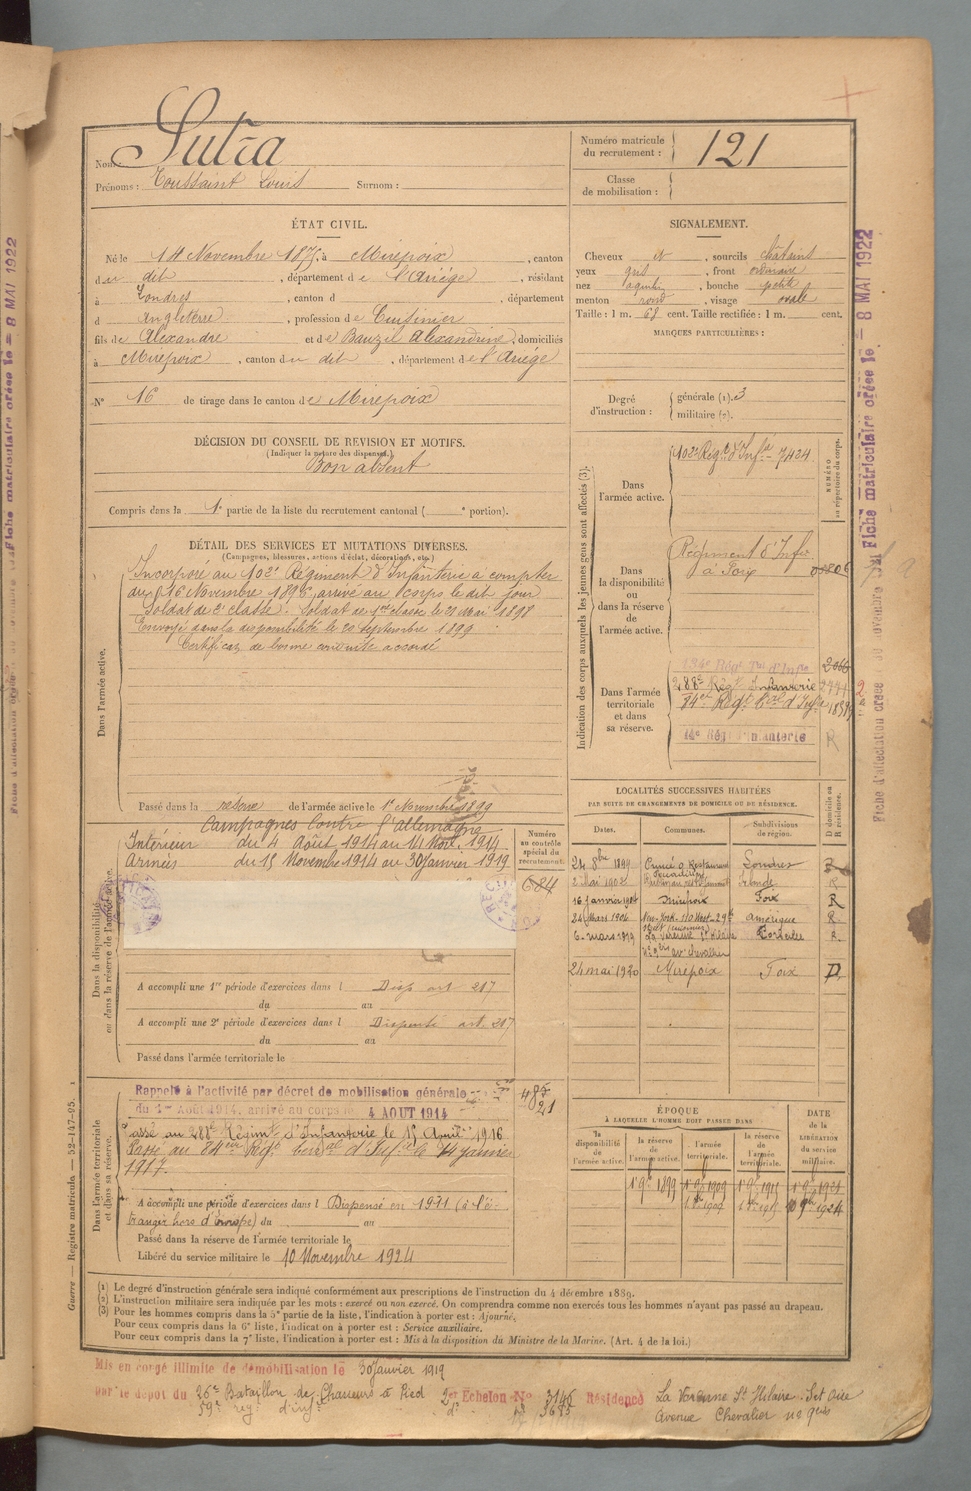 Nom: Sutra
Prénoms: Toussaint Louis Surnom:
Numéro matricule du recrutement: 121
Classe de mobilisation:
ÉTAT CIVIL.
Né le 14 Novembre 1875, à Mirepoix, canton
du dit, département de l'Ariège, résidant
à Londres, canton d , département
d Angleterre, profession de Cuisinier
fils de Alexandre et de Bauzil Alexandrine, domiciliés
à Mirepoix, canton du dit, département de l'Ariège
N° 16 de tirage dans le canton de Mirepoix
SIGNALEMENT.
Cheveux et, sourcils châtains
yeux gris, front ordinaire
nez aquilin, bouche petite
menton rond, visage ovale
Taille: 1 m. 68 cent. Taille rectifiée: 1 m. cent.
MARQUES PARTICULIÈRES:
Degré d'instruction: générale (1). 3
militaire (2).
DÉCISION DU CONSEIL DE REVISION ET MOTIFS.
(Indiquer la nature des dispenses.)
Bon absent
Compris dans la 1e partie de la liste du recrutement cantonal ( e portion).
DÉTAIL DES SERVICES ET MUTATIONS DIVERSES.
(Campagnes, blessures, actions d'éclat, décorations, etc.)
Dans l'armée active.
Incorporé au 102e Régiment d'Infanterie à compter
du 16 Novembre 1896, arrivé au corps le dit jour
Soldat de 2e classe. Soldat de 1re classe le 21 Mai 1898
Envoyé dans la disponibilité le 20 septembre 1899
Certificat de bonne conduite accordé
Passé dans la réserve de l'armée active le 1er Novembre 1899
Indication des corps auxquels les jeunes gens sont affectés (3).
NUMÉRO au répertoire du corps.
Dans l'armée active.
102e Régt d'Infie 7424
Dans la disponibilité ou dans la réserve de l'armée active.
Régiment d'Infie
à Foix
Dans l'armée territoriale et dans sa réserve.
134e Régt Tal d'Infie
288e Régt Infanterie
84e Régt Tal d'Infie
14e Régt Infanterie
Dans la disponibilité ou dans la réserve de l'armée active.
Campagnes Contre l'Allemagne
Intérieur du 4 Août 1914 au 14 Nov. 1914
Armées du 15 Novembre 1914 au 30 Janvier 1919
Numéro au contrôle spécial du recrutement.
684
A accompli une 1re période d'exercices dans l Disp art 217
du au
A accompli une 2e période d'exercices dans l Dispensé art. 217
du au
Passé dans l'armée territoriale le
LOCALITÉS SUCCESSIVES HABITÉES
PAR SUITE DE CHANGEMENTS DE DOMICILE OU DE RÉSIDENCE.
Dates. Communes. Subdivisions de région. D domicile ou R résidence.
24 8bre 1899 Restaurant Piccadilly Londres
2 Mai 1902 Irlande R
16 janvier 1904 Mirepoix Foix R
24 Mars 1906 New-York 110 West-29th Street Amérique R
6 mars 1919 La Varenne St Hilaire av Chevalier R
24 mai 1920 Mirepoix Foix D
Dans l'armée territoriale et dans sa réserve.
Rappelé à l'activité par décret de mobilisation générale
du 1er Août 1914, arrivé au corps le 4 AOUT 1914
Passé au 288e Régimt d'Infanterie le 15 Avril 1916
Passé au 84e Régt Terral d'Infie le 14 janvier
1917.
A accompli une période d'exercices dans l Dispensé en 1911 (à l'étranger hors d'Europe) du au
Passé dans la réserve de l'armée territoriale le
Libéré du service militaire le 10 Novembre 1924
ÉPOQUE
A LAQUELLE L'HOMME DOIT PASSER DANS
la disponibilité de l'armée active. la réserve de l'armée active. l'armée territoriale. la réserve de l'armée territoriale. DATE de la LIBÉRATION du service militaire.
1er 9bre 1899 1er 9bre 1909 1er 9bre 1915 1er 9bre 1921
1er 8bre 1909 1er 8bre 1915 10 9bre 1924
Guerre — Registre matricule. — 52-147-95.
(1) Le degré d'instruction générale sera indiqué conformément aux prescriptions de l'instruction du 4 décembre 1889.
(2) L'instruction militaire sera indiquée par les mots: exercé ou non exercé. On comprendra comme non exercés tous les hommes n'ayant pas passé au drapeau.
(3) Pour les hommes compris dans la 5e partie de la liste, l'indication à porter est: Ajourné.
Pour ceux compris dans la 6e liste, l'indication à porter est: Service auxiliaire.
Pour ceux compris dans la 7e liste, l'indication à porter est: Mis à la disposition du Ministre de la Marine. (Art. 4 de la loi.)
Mis en congé illimité de démobilisation le 30 Janvier 1919
par le dépôt du 26e Bataillon de Chasseurs à Pied 2er Echelon No 3146 Résidence La Varenne St Hilaire Set Oise
59e reg. d'inf. do 3685 Avenue Chevalier no 9bis
Fiche matriculaire créée le 8 MAI 1922
Fiche d'affectation créée